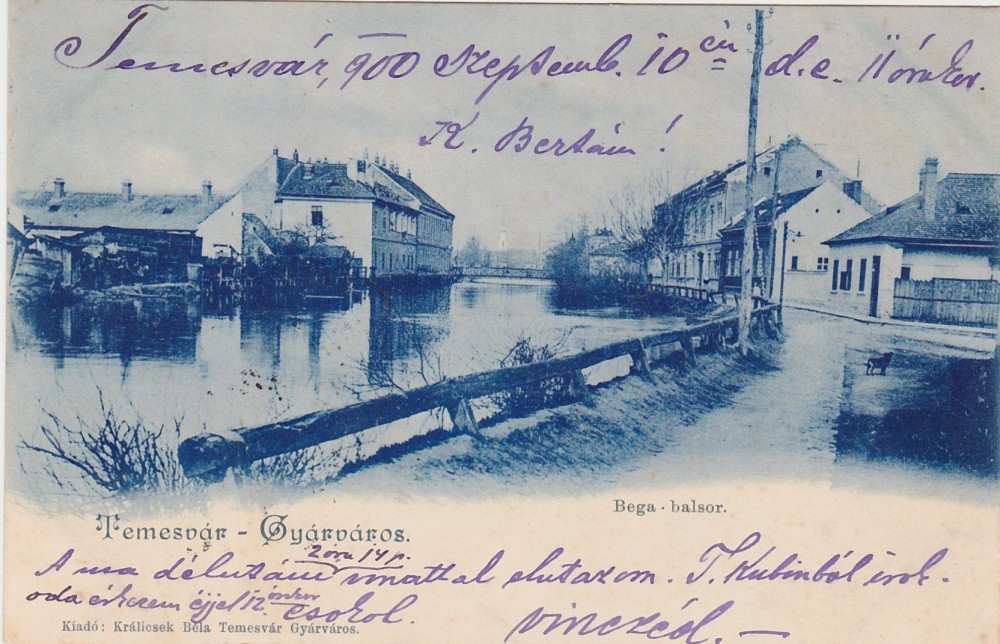 Temesvár, 900 Szeptemb. 10 én d. e. 11 órakor.
K. Bertám!
Bega - balsor.
Temesvár - Gyárváros.
2 óra 14 p.
A ma délutáni vonattal elutazom. T. Kubinból irok.
oda érkezem éjjel 12 órakor csokol.
Kiadó: Králicsek Béla Temesvár Gyárváros.